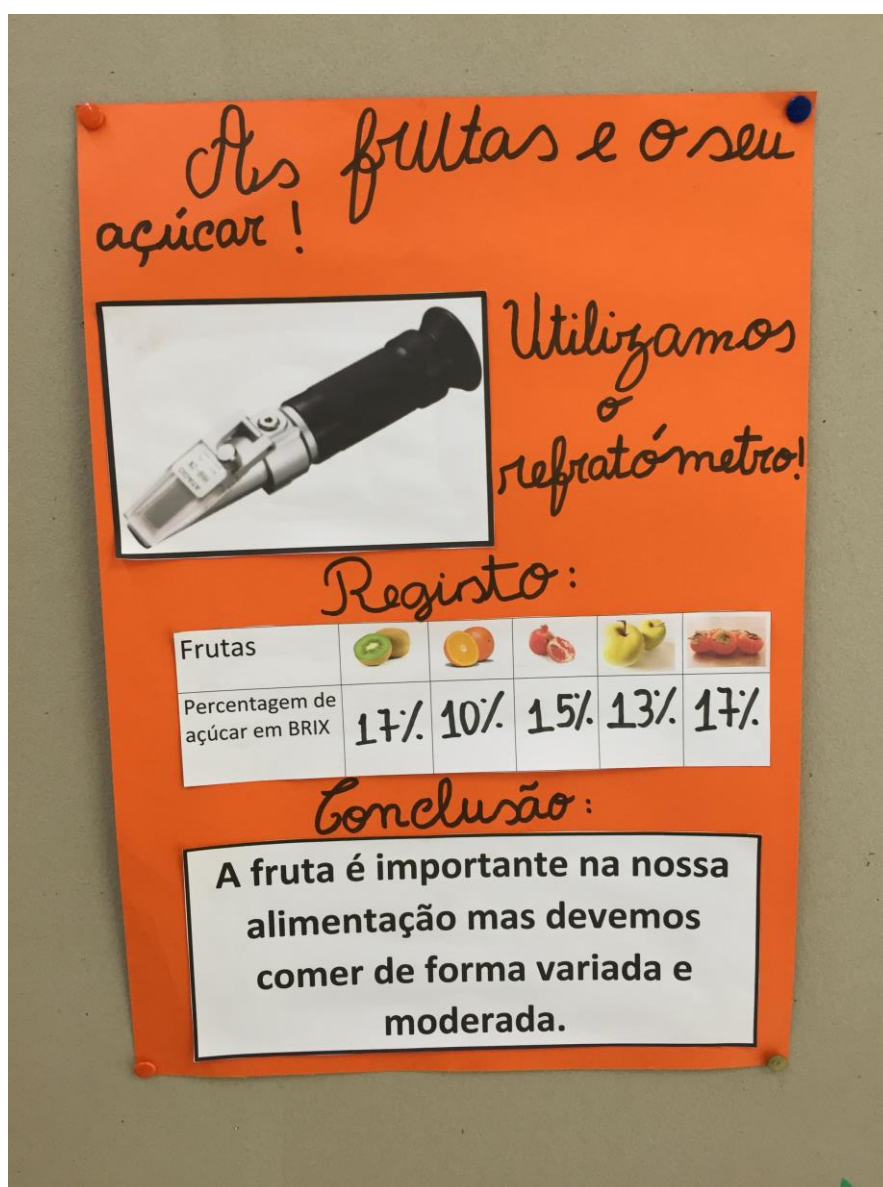 As frutas e o seu
açúcar!
Utilizamos
o
refratómetro!
Registo:
Frutas
Percentagem de
açúcar em BRIX
17% 10% 15% 13% 17%
Conclusão:
A fruta é importante na nossa
alimentação mas devemos
comer de forma variada e
moderada.